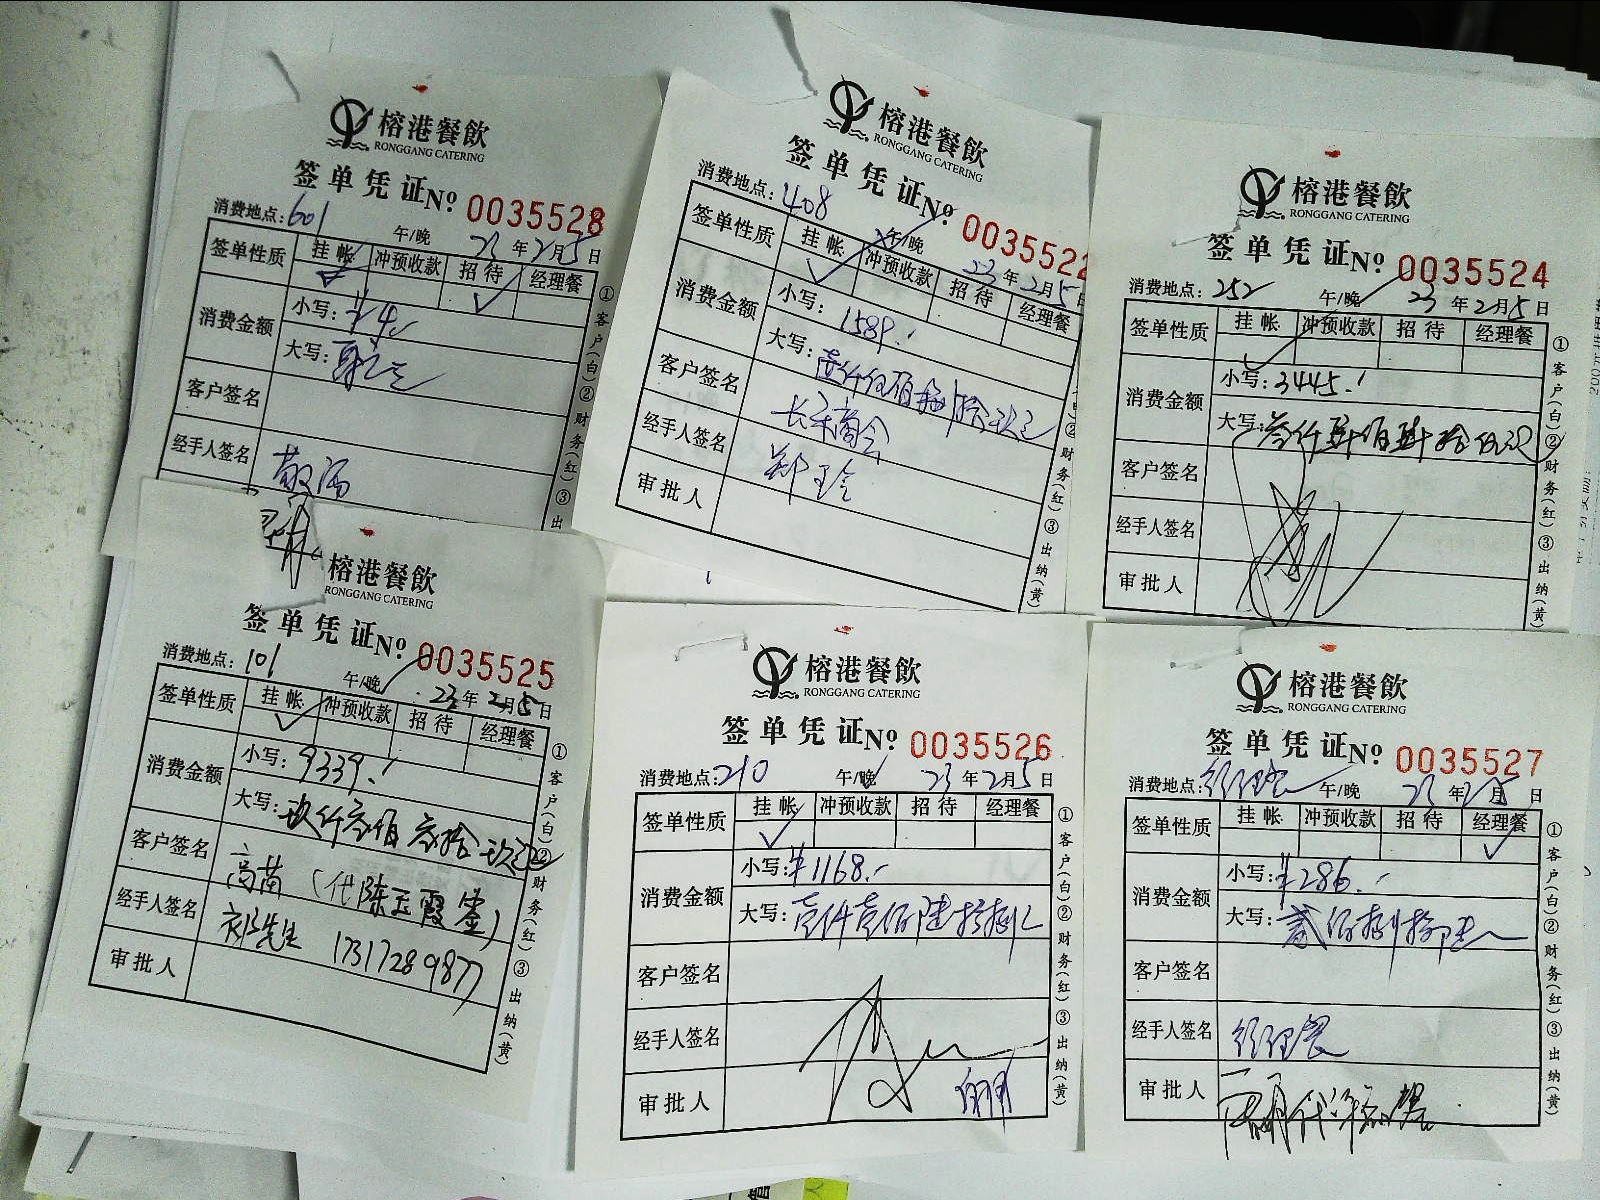 榕港餐飲
RONGGANG CATERING
签单凭证 Nº 0035528
消费地点: 601 午/晚 23年2月5日
签单性质 挂帐 冲预收款 招待 经理餐
消费金额 小写: ¥4./
大写:
客户签名
经手人签名
①客户(白)②财务(红)③出
榕港餐飲
RONGGANG CATERING
签单凭证 Nº 003552
消费地点: 408 午/晚 23年2月5日
签单性质 挂帐 冲预收款 招待 经理餐
消费金额 小写: 1589./
大写: 壹仟伍佰捌拾玖元
客户签名 长乐商会
经手人签名 郑玉金
审批人
②财务(红)③出纳(黄)
榕港餐飲
RONGGANG CATERING
签单凭证 Nº 0035524
消费地点: 252 午/晚 23年2月5日
签单性质 挂帐 冲预收款 招待 经理餐
消费金额 小写: 3445./
大写: 叁仟肆佰肆拾伍元
客户签名
经手人签名
审批人
①客户(白)②财务(红)③出纳(黄)
榕港餐飲
RONGGANG CATERING
签单凭证 Nº 0035525
消费地点: 101 午/晚 23年2月5日
签单性质 挂帐 冲预收款 招待 经理餐
消费金额 小写: 9339./
大写: 玖仟叁佰叁拾玖元
客户签名 高苗(代陈玉霞签)
经手人签名 祁先生 17317289877
审批人
①客户(白)②财务(红)③出纳(黄)
榕港餐飲
RONGGANG CATERING
签单凭证 Nº 0035526
消费地点: 210 午/晚 23年2月5日
签单性质 挂帐 冲预收款 招待 经理餐
消费金额 小写: ¥1168./
大写: 壹仟壹佰陆拾捌元
客户签名
经手人签名
审批人
①客户(白)②财务(红)③出纳(黄)
榕港餐飲
RONGGANG CATERING
签单凭证 Nº 0035527
消费地点: 经理餐 午/晚 23年2月5日
签单性质 挂帐 冲预收款 招待 经理餐
消费金额 小写: ¥286./
大写: 贰佰捌拾陆元
客户签名
经手人签名 经理餐
审批人
①客户(白)②财务(红)③出纳(黄)